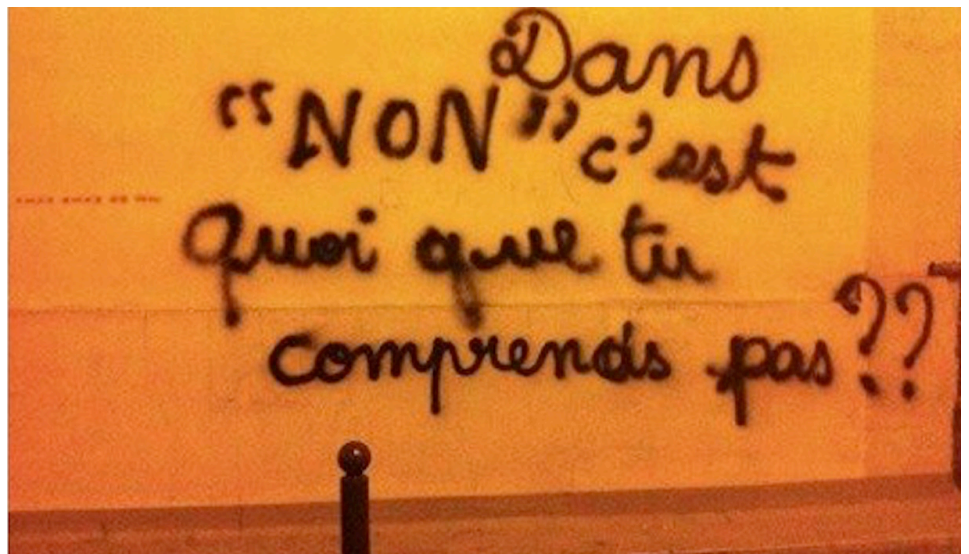 Dans
"NON" c'est
quoi que tu
comprends pas??